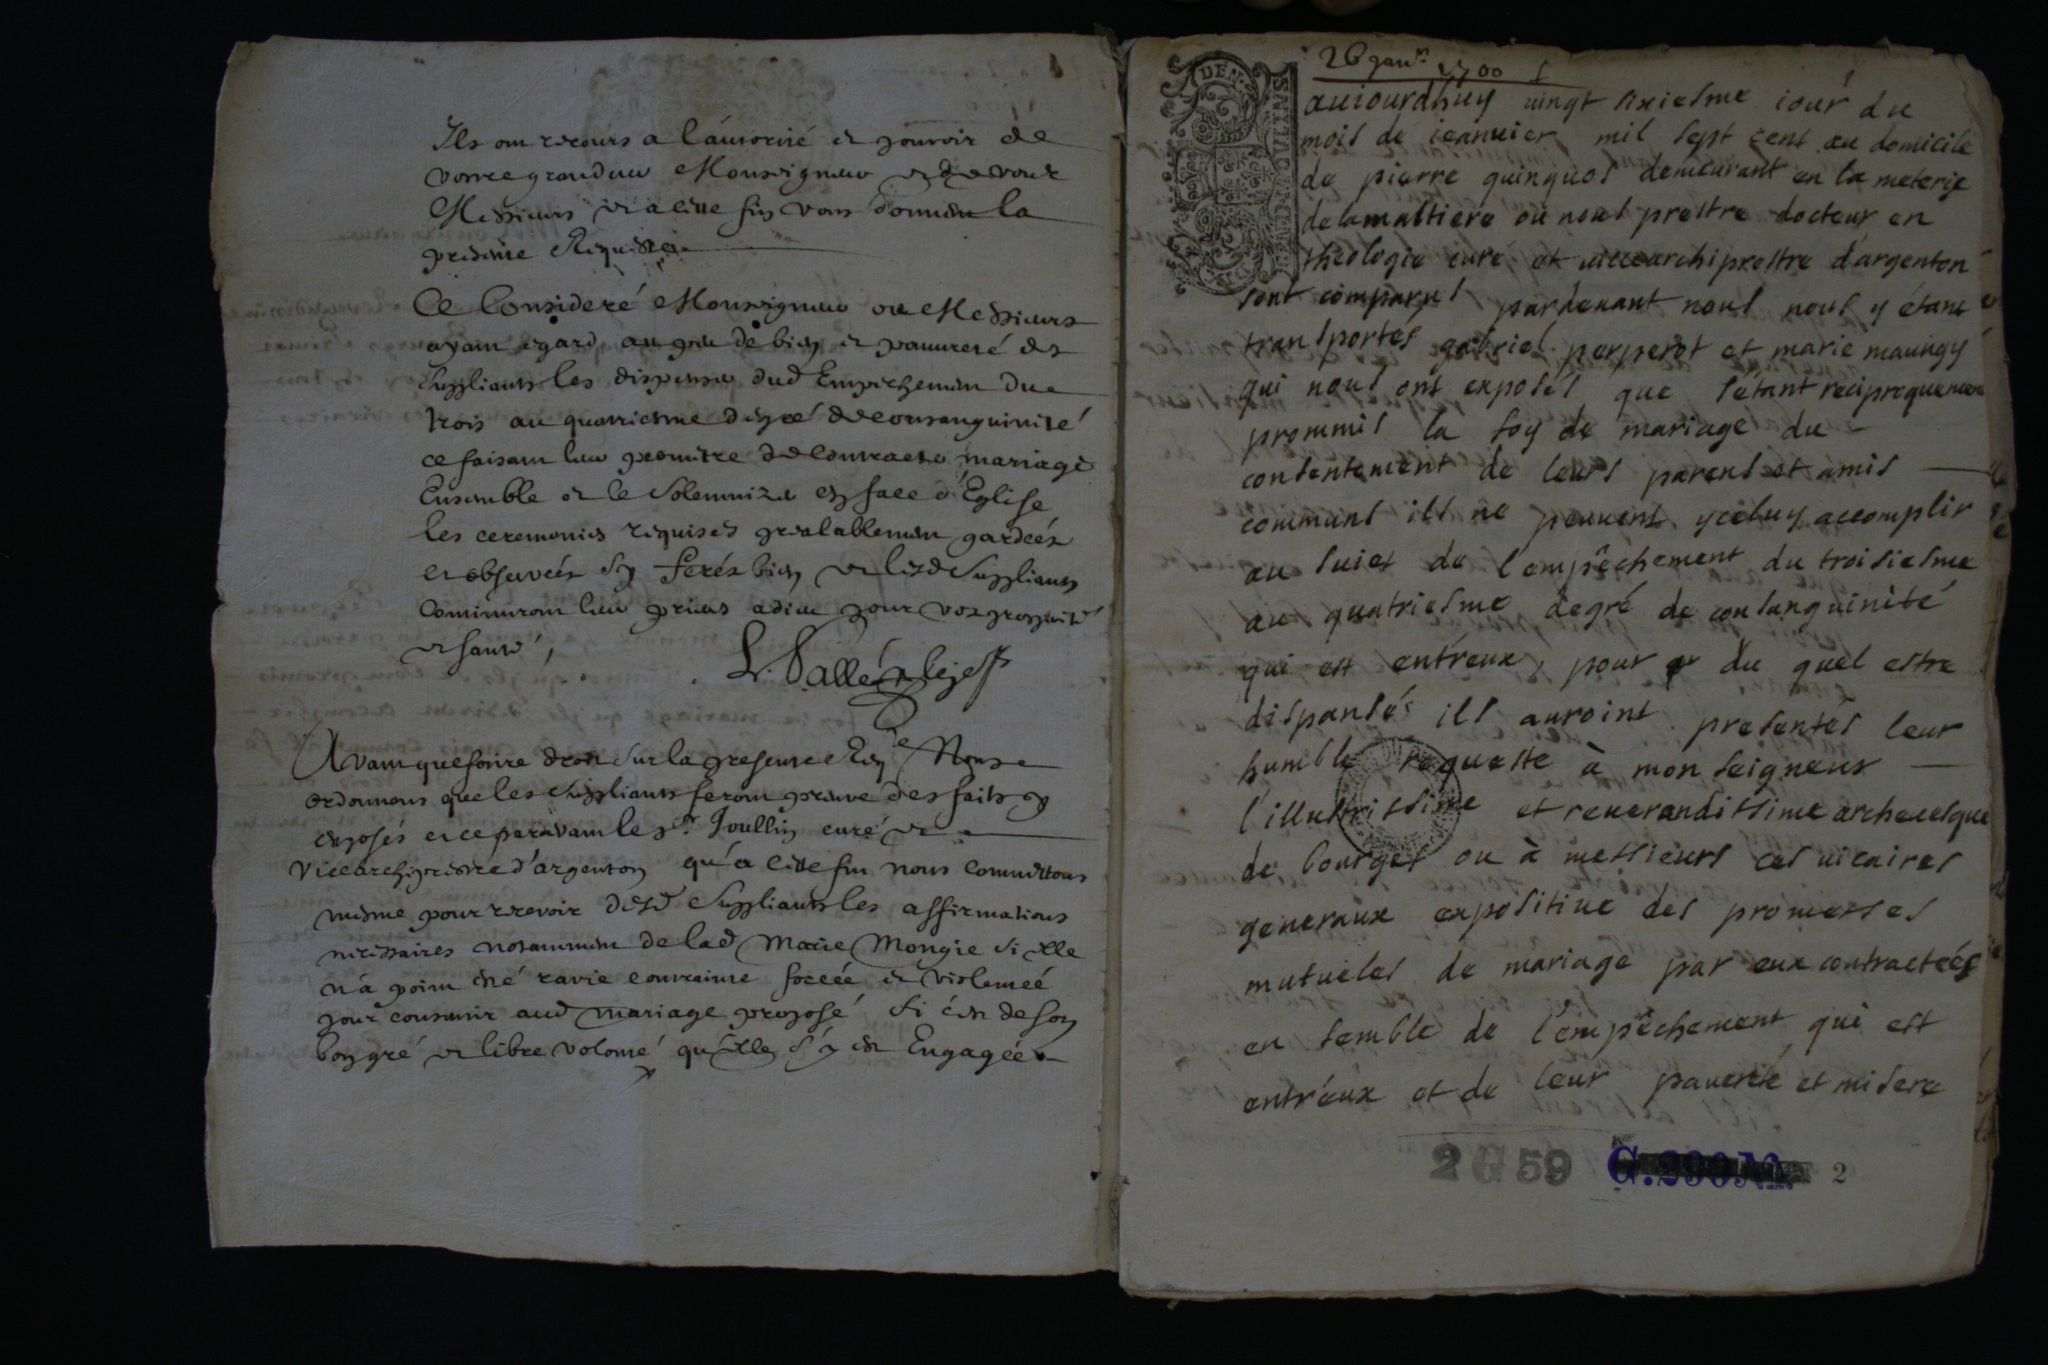 Ils ont recours a l'autorité et pouvoir de
vostre grandeur Monseigneur et de vous
Messieurs et a cette fin vous donnent la
presente Requeste
Ce Consideré Monseigneur ou Messieurs
ayant egard au peu de bien et pauvreté des
Suppliants les dispenser dud Empeschement du
trois au quatriesme degré de consanguinité
ce faisant leur permettre de contracter mariage
Ensemble et le Solemnizer en face d'Eglise
les ceremonies requises prealablement gardées
et observées Sy ferés bien et lesd Suppliants
Continuront leur prieres a dieu pour vos prosperité
et santé,
Avant que faire droit Sur la presente Reqte Nous
ordonnons que les Suppliants feront preuve des faits y
exposés et ce paravant le sr Joullin curé et
Vicearchiprestre d'argenton qu'a cette fin nous commettons
mesme pour recevoir desd Suppliants les affirmations
necessaires notamment de lad Marie Mongie si elle
n'a point esté ravie contrainte forcée et violentée
pour consentir aud mariage proposé si c'est de son
bon gré et libre volonté qu'elle s'y est Engagée
26 janr. 1700
aujourdhuy uingt sixiesme iour du
mois de ieanuier mil sept cent au domicile
de pierre quinquos demeurant en la meterie
de la maltiere où nous prestre docteur en
theologie curé et uicearchiprestre d'argenton
sont comparus pardeuant nous nous y étant
transportés gabriel perperot et marie maungy
qui nous ont exposés que s'étant reciproquement
prommis la foy de mariage du
consentement de leurs parens et amis
communs ils ne peuuent yceluy accomplir
au suiet de l'empêchement du troisiesme
au quatriesme degré de consanguinité
qui est entreux, pour du quel estre
dispansés ils auroint presentés leur
humble requeste à monseigneur
l'illustrissime et reuerandissime archeuesque
de bourges ou à messieurs ces uicaires
generaux expositiue des promesses
mutueles de mariage par eux contractées
en semble de l'empêchement qui est
entréux et de leur pauerté et misere
2 G 59 G. 290 2